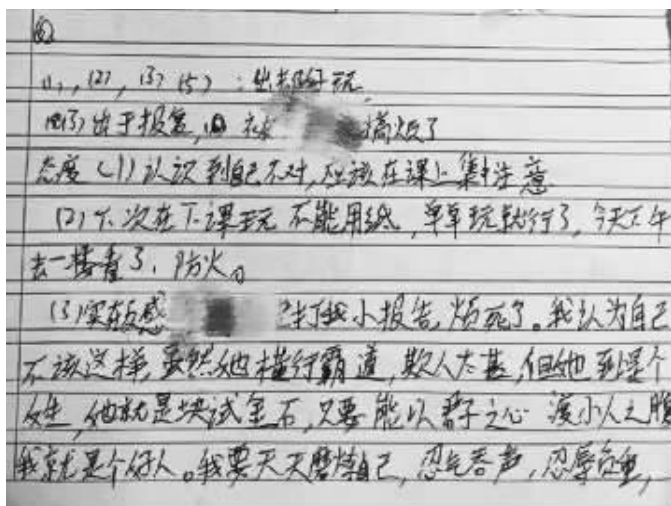 (1), (2), (3) (5) : 出于好玩
(3) 出于报复, 被 搞烦了
态度 (1) 认识到自己不对, 应该在课上集中注意
(2) 下次在下课玩 不能用纸, 单单玩就行了, 今天下午
去一楼看了, 防火。
(3) 实在反感 打我小报告, 烦死了。我认为自己
不该这样, 虽然她横行霸道, 欺人太甚, 但她到是个
女生, 她就是块试金石, 只要能以君子之心 渡小人之腹
我就是个好人。我要天天磨炼自己, 忍气吞声, 忍辱负重,